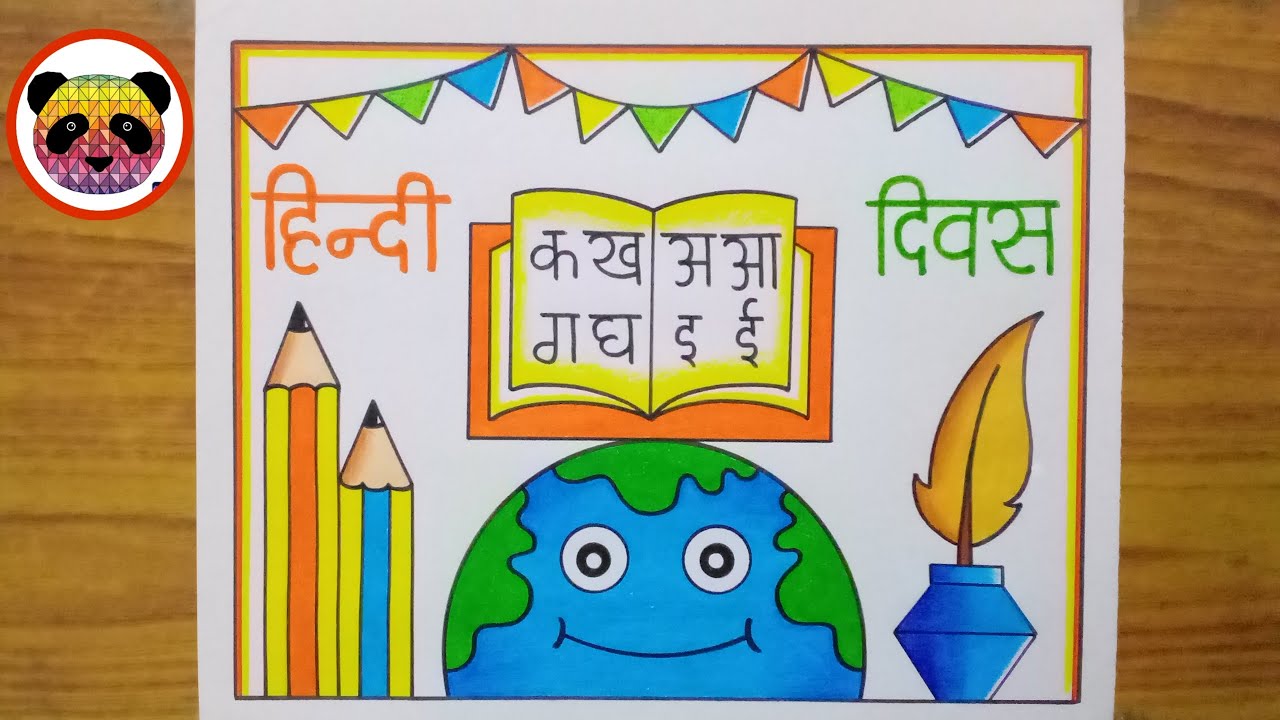 हिन्दी
दिवस
क ख अ आ
ग घ इ ई